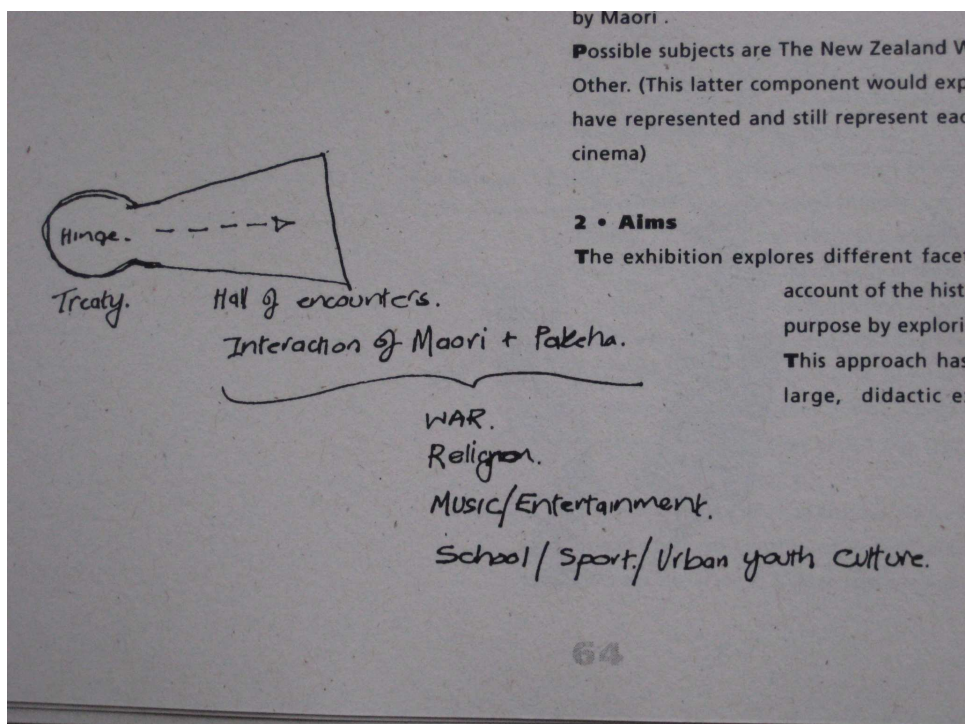 by Maori .
Possible subjects are The New Zealand W
Other. (This latter component would exp
have represented and still represent eac
cinema)
2 • Aims
The exhibition explores different facet
account of the hist
purpose by explori
This approach has
large, didactic e
Hinge.
Treaty.
Hall of encounters.
Interaction of Maori + Pakeha.
WAR.
Religion.
Music/Entertainment.
School/Sport./Urban youth culture.
64